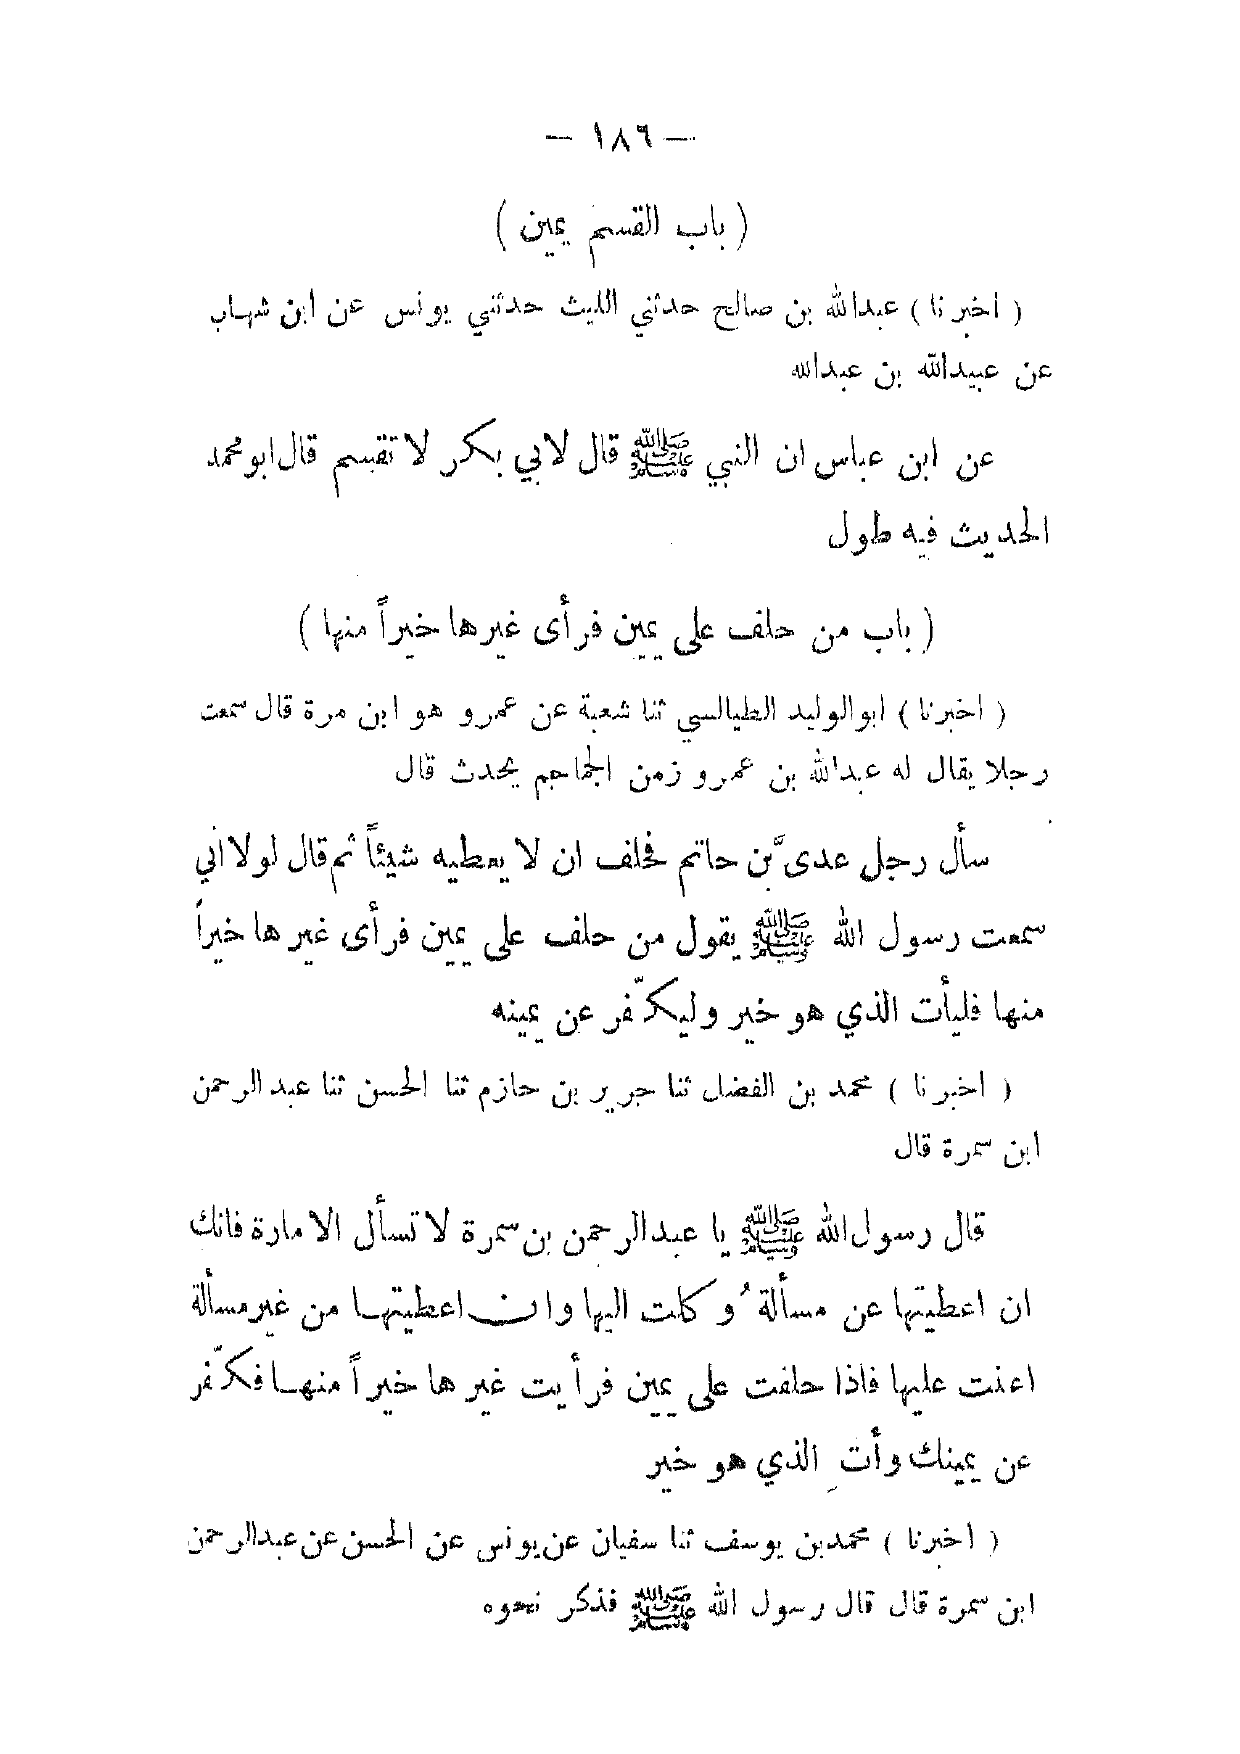 — ١٨٦ —
( باب القسم يمين )
( اخبرنا ) عبدالله بن صالح حدثني الليث حدثني يونس عن ابن شهاب
عن عبيدالله بن عبدالله
عن ابن عباس ان النبي ﷺ قال لابي بكر لا تقسم قال ابو محمد
الحديث فيه طول
( باب من حلف على يمين فرأى غيرها خيراً منها )
( اخبرنا ) ابوالوليد الطيالسي ثنا شعبة عن عمرو هو ابن مرة قال سمعت
رجلا يقال له عبدالله بن عمرو زمن الجماجم يحدث قال
سأل رجل عدىّ بن حاتم فحلف ان لا يعطيه شيئاً ثم قال لولا اني
سمعت رسول الله ﷺ يقول من حلف على يمين فرأى غيرها خيراً
منها فليأت الذي هو خير وليكفّر عن يمينه
( اخبرنا ) محمد بن الفضل ثنا جرير بن حازم ثنا الحسن ثنا عبد الرحمن
ابن سمرة قال
قال رسول الله ﷺ يا عبدالرحمن بن سمرة لا تسأل الامارة فانك
ان اعطيتها عن مسألة وُكلت اليها وان اعطيتها من غير مسألة
اعنت عليها فاذا حلفت على يمين فرأيت غيرها خيراً منها فكفّر
عن يمينك وأتِ الذي هو خير
( اخبرنا ) محمد بن يوسف ثنا سفيان عن يونس عن الحسن عن عبدالرحمن
ابن سمرة قال قال رسول الله ﷺ فذكر نحوه